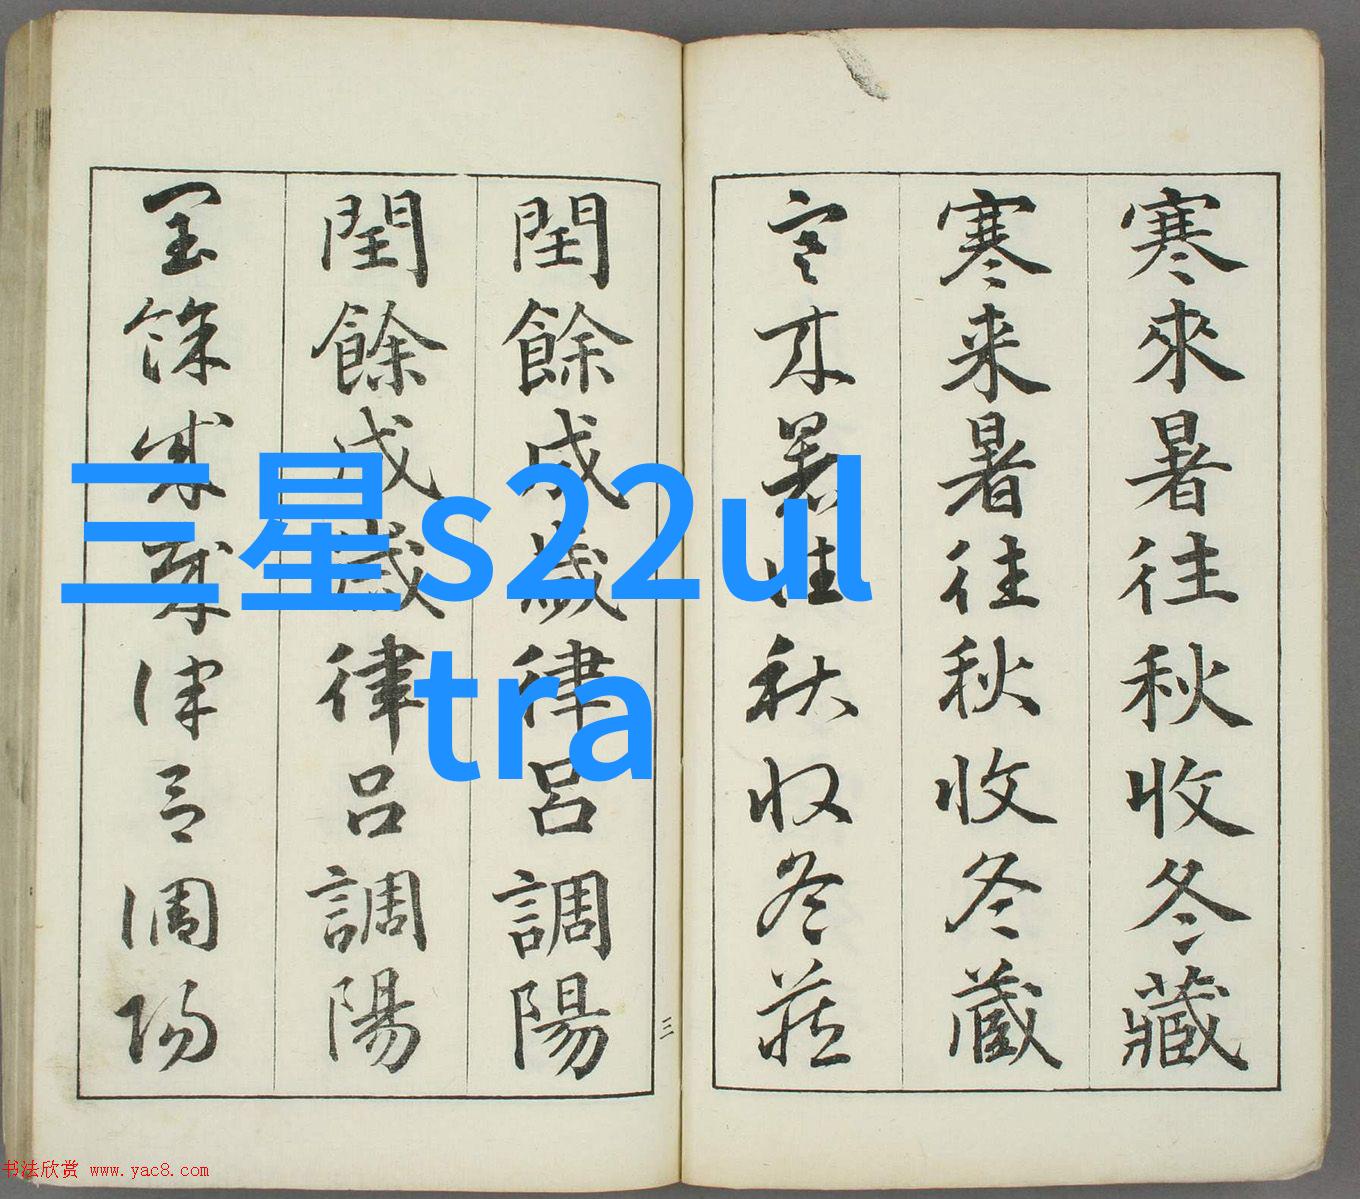 寒來暑往秋收冬藏
寒来暑往秋收冬蔵
寒来暑往秋收冬藏
三
閏餘成歲律呂調陽
閏餘成歲律呂調陽
閏餘成歲律呂調陽
三星s22ul
tra
书法欣赏 www.yac8.com